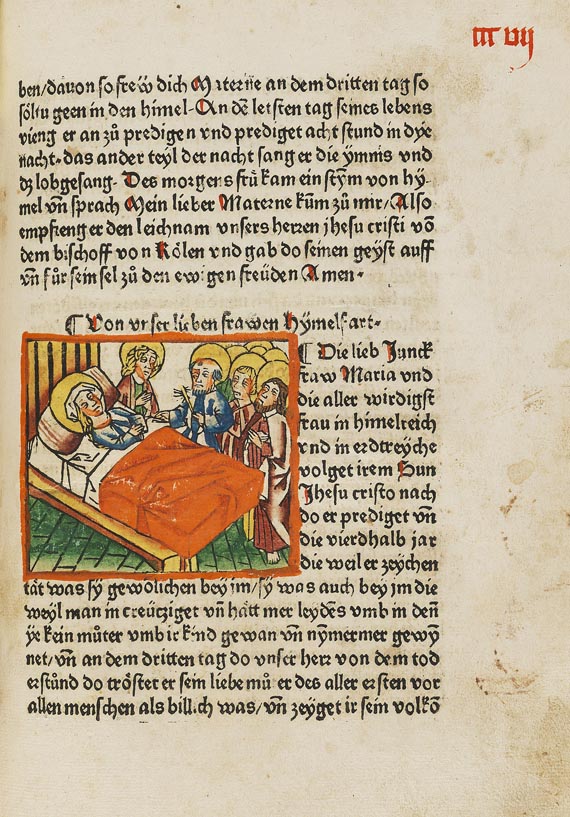 m vij
ben/davon so frew dich Materne an dem dritten tag so
söltu geen in den himel· An dē letsten tag seines lebens
vieng er an zů predigen vnd prediget acht stund in dye
nacht· das ander teyl der nacht sang er die ymnis vnd
dz lobgesang· Des morgens frů kam ein stym von hy⸗
mel vn̄ sprach Mein lieber Materne kům zů mir/Also
empfieng er den leichnam vnsers herren jhesu cristi vō
dem bischoff von Kölen vnd gab do seinen geyst auff
vn̄ fůr sein sel zů den ewigen freüden Amen·
¶ Von vnser lieben frawen hymelfart·
¶ Die lieb Junck
fraw Maria vnd
die aller wirdigst
frau in himelreich
vnd in erdtreyche
volget irem Sun
Jhesu cristo nach
do er prediget vn̄
die vierdhalb jar
die weil er zeychen
tät was sy gewölichen bey jm/sy was auch bey jm die
weyl man in creütziget vn̄ hätt mer leydens vmb in den̄
ye kein můter vmb ir kind gewan vn̄ nymermer gewȳ
net/vn̄ an dem dritten tag do vnser herr von dem tod
erstůnd do tröstet er sein liebe můter des aller ersten vor
allen menschen als billich was/vn̄ zeyget ir sein volkō